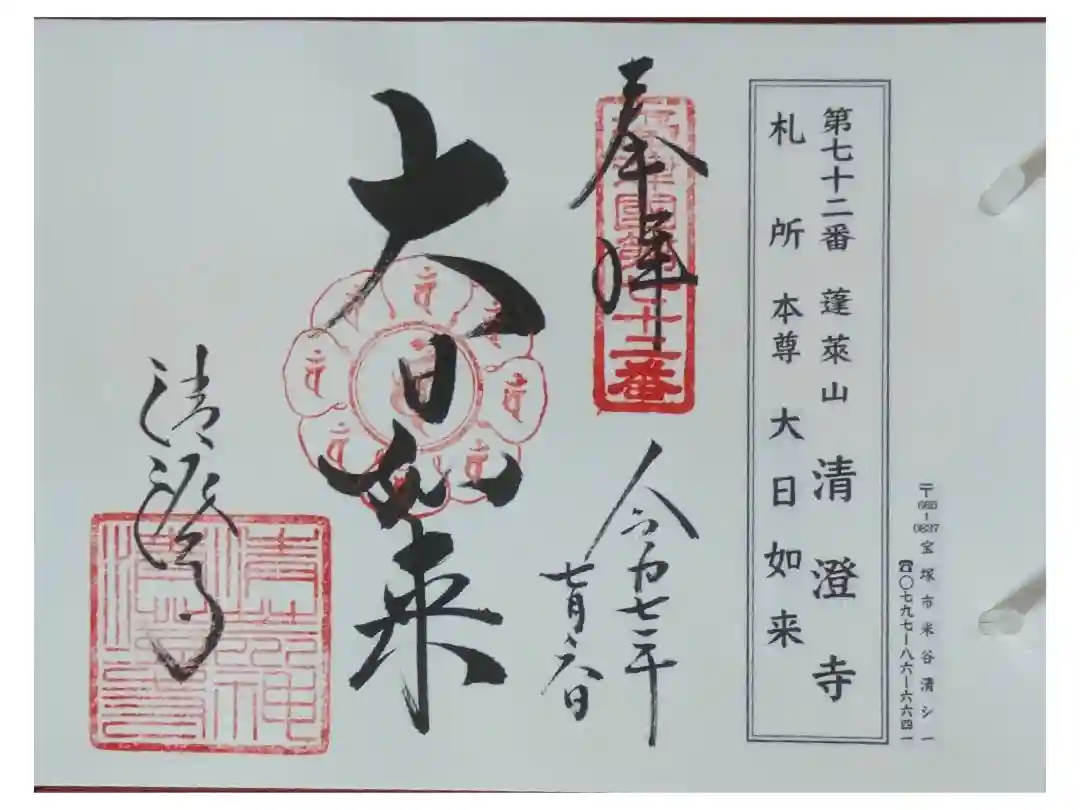 〒665-0837 宝塚市米谷清シ一
☎〇七九七ー八六ー六六四一
第七十二番 蓬萊山 清澄寺
札所本尊 大日如来
奉拝
摂津国第七十二番
令和七年
七月六日
大日如来
清澄寺